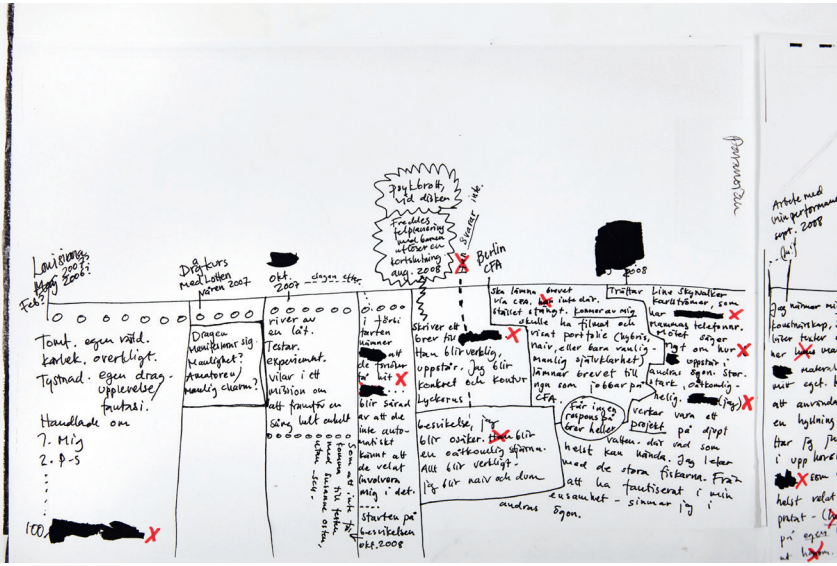 Feb?
Tomt. egen värld.
overkligt.
Tystnad. egen drag-
upplevelse/
fantasi.
Handlade om
1. Mig
2. P-s
100.
Dragkurs
med Lotten
våren 2007
Dragen
manifesterar sig.
Manlighet?
Amatören/
manlig charm?
okt.
2007
dagen efter
river av
en låt.
Testar.
experiment.
vilar i ett
mission om
att framför en
sång helt enkelt
Som att inte få
komma till festen
med Susanne Osten,
i förbi
farten
nämner
att
de
få hit
blir sårad
av att de
inte auto-
matiskt
känt att
de velat
involvera
mig i det.
Starten på
besvikelsen
okt. 2008
psykbrott,
vid disken
Freddes
felplanering
med barnen
utlöser en
kortslutning
aug. 2008
Svarar inte.
Berlin
CFA
Skriver ett
brev till
Han blir verklig,
uppstår. Jag blir
konkret och kontur
Lyckorus
besvikelse, jag
blir osäker. Han blir
en oåtkomlig stjärna.
Allt blir verkligt.
jag blir naiv och dum
Ska lämna brevet
via CFA. han inte där.
stället stängt. kommer av mig
skulle ha filmat och
visat portfolie (hybris,
naiv, eller bara vanlig
manlig självklarhet)
lämnar brevet till
ngn som jobbar på
CFA.
får ingen
respons på
brev heller
2008
Träffar Line Skywalker
Karlströmer, som
har
mannas telefonnr.
Mötet säger
ngt om hur
uppstår i
andras ögon. Stor.
stark. oåtkomlig-
helig. (jag)
verkar vara ett
projekt på djupt
vatten. där vad som
helst kan hända. Jag leker
med de stora fiskarna. Från
att ha fantiserat i min
ensamhet - simmar jag i
andras ögon.
Paranoian
Arbete med
min performance
sept. 2008
Jag närmar mig
konstnärskap,
låter texter
her
material
mitt eget.
att använda
en hyllning
Har jag ju
i upp
som
helst relat
pratat -
på egen
ut